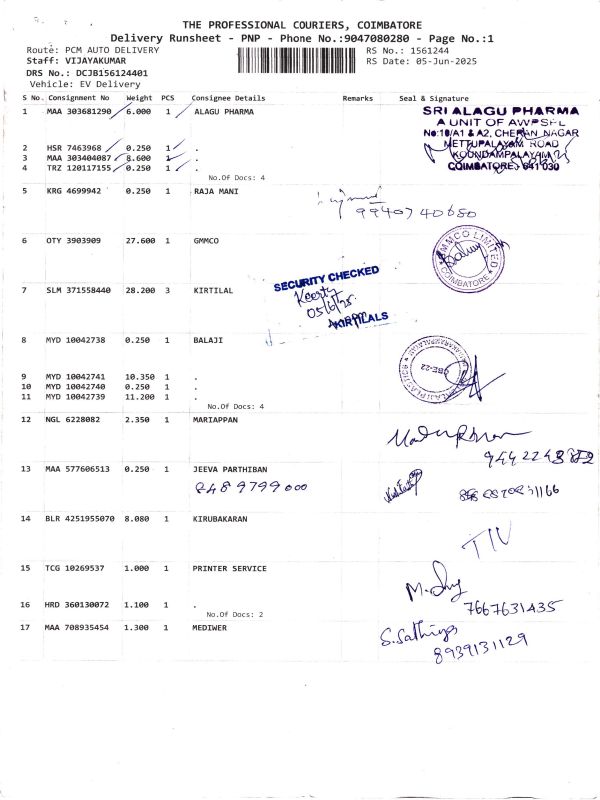 THE PROFESSIONAL COURIERS, COIMBATORE
Delivery Runsheet - PNP - Phone No.:9047080280 - Page No.:1
Route: PCM AUTO DELIVERY
RS No.: 1561244
Staff: VIJAYAKUMAR
RS Date: 05-Jun-2025
DRS No.: DCJB156124401
Vehicle: EV Delivery
S No. Consignment No Weight PCS Consignee Details Remarks Seal & Signature
1 MAA 303681290 6.000 1 ALAGU PHARMA
SRI ALAGU PHARMA
A UNIT OF AWPSPL
No:10/A1 & A2, CHERAN NAGAR
METTUPALAYAM ROAD
KOUNDAMPALAYAM
COIMBATORE 641 030
2 HSR 7463968 0.250 1 .
3 MAA 303404087 8.600 1 .
4 TRZ 120117155 0.250 1 .
No.Of Docs: 4
5 KRG 4699942 0.250 1 RAJA MANI
9940740680
6 OTY 3903909 27.600 1 GMMCO
GMMCO LIMITED
COIMBATORE
7 SLM 371558440 28.200 3 KIRTILAL
SECURITY CHECKED
05/6/25
KIRTILALS
8 MYD 10042738 0.250 1 BALAJI
CBE-22
9 MYD 10042741 10.350 1 .
10 MYD 10042740 0.250 1 .
11 MYD 10042739 11.200 1 .
No.Of Docs: 4
12 NGL 6228082 2.350 1 MARIAPPAN
13 MAA 577606513 0.250 1 JEEVA PARTHIBAN
8489799000
14 BLR 4251955070 8.080 1 KIRUBAKARAN
15 TCG 10269537 1.000 1 PRINTER SERVICE
16 HRD 360130072 1.100 1 .
7667631435
No.Of Docs: 2
17 MAA 708935454 1.300 1 MEDIWER
S.Sathiya
8939131129